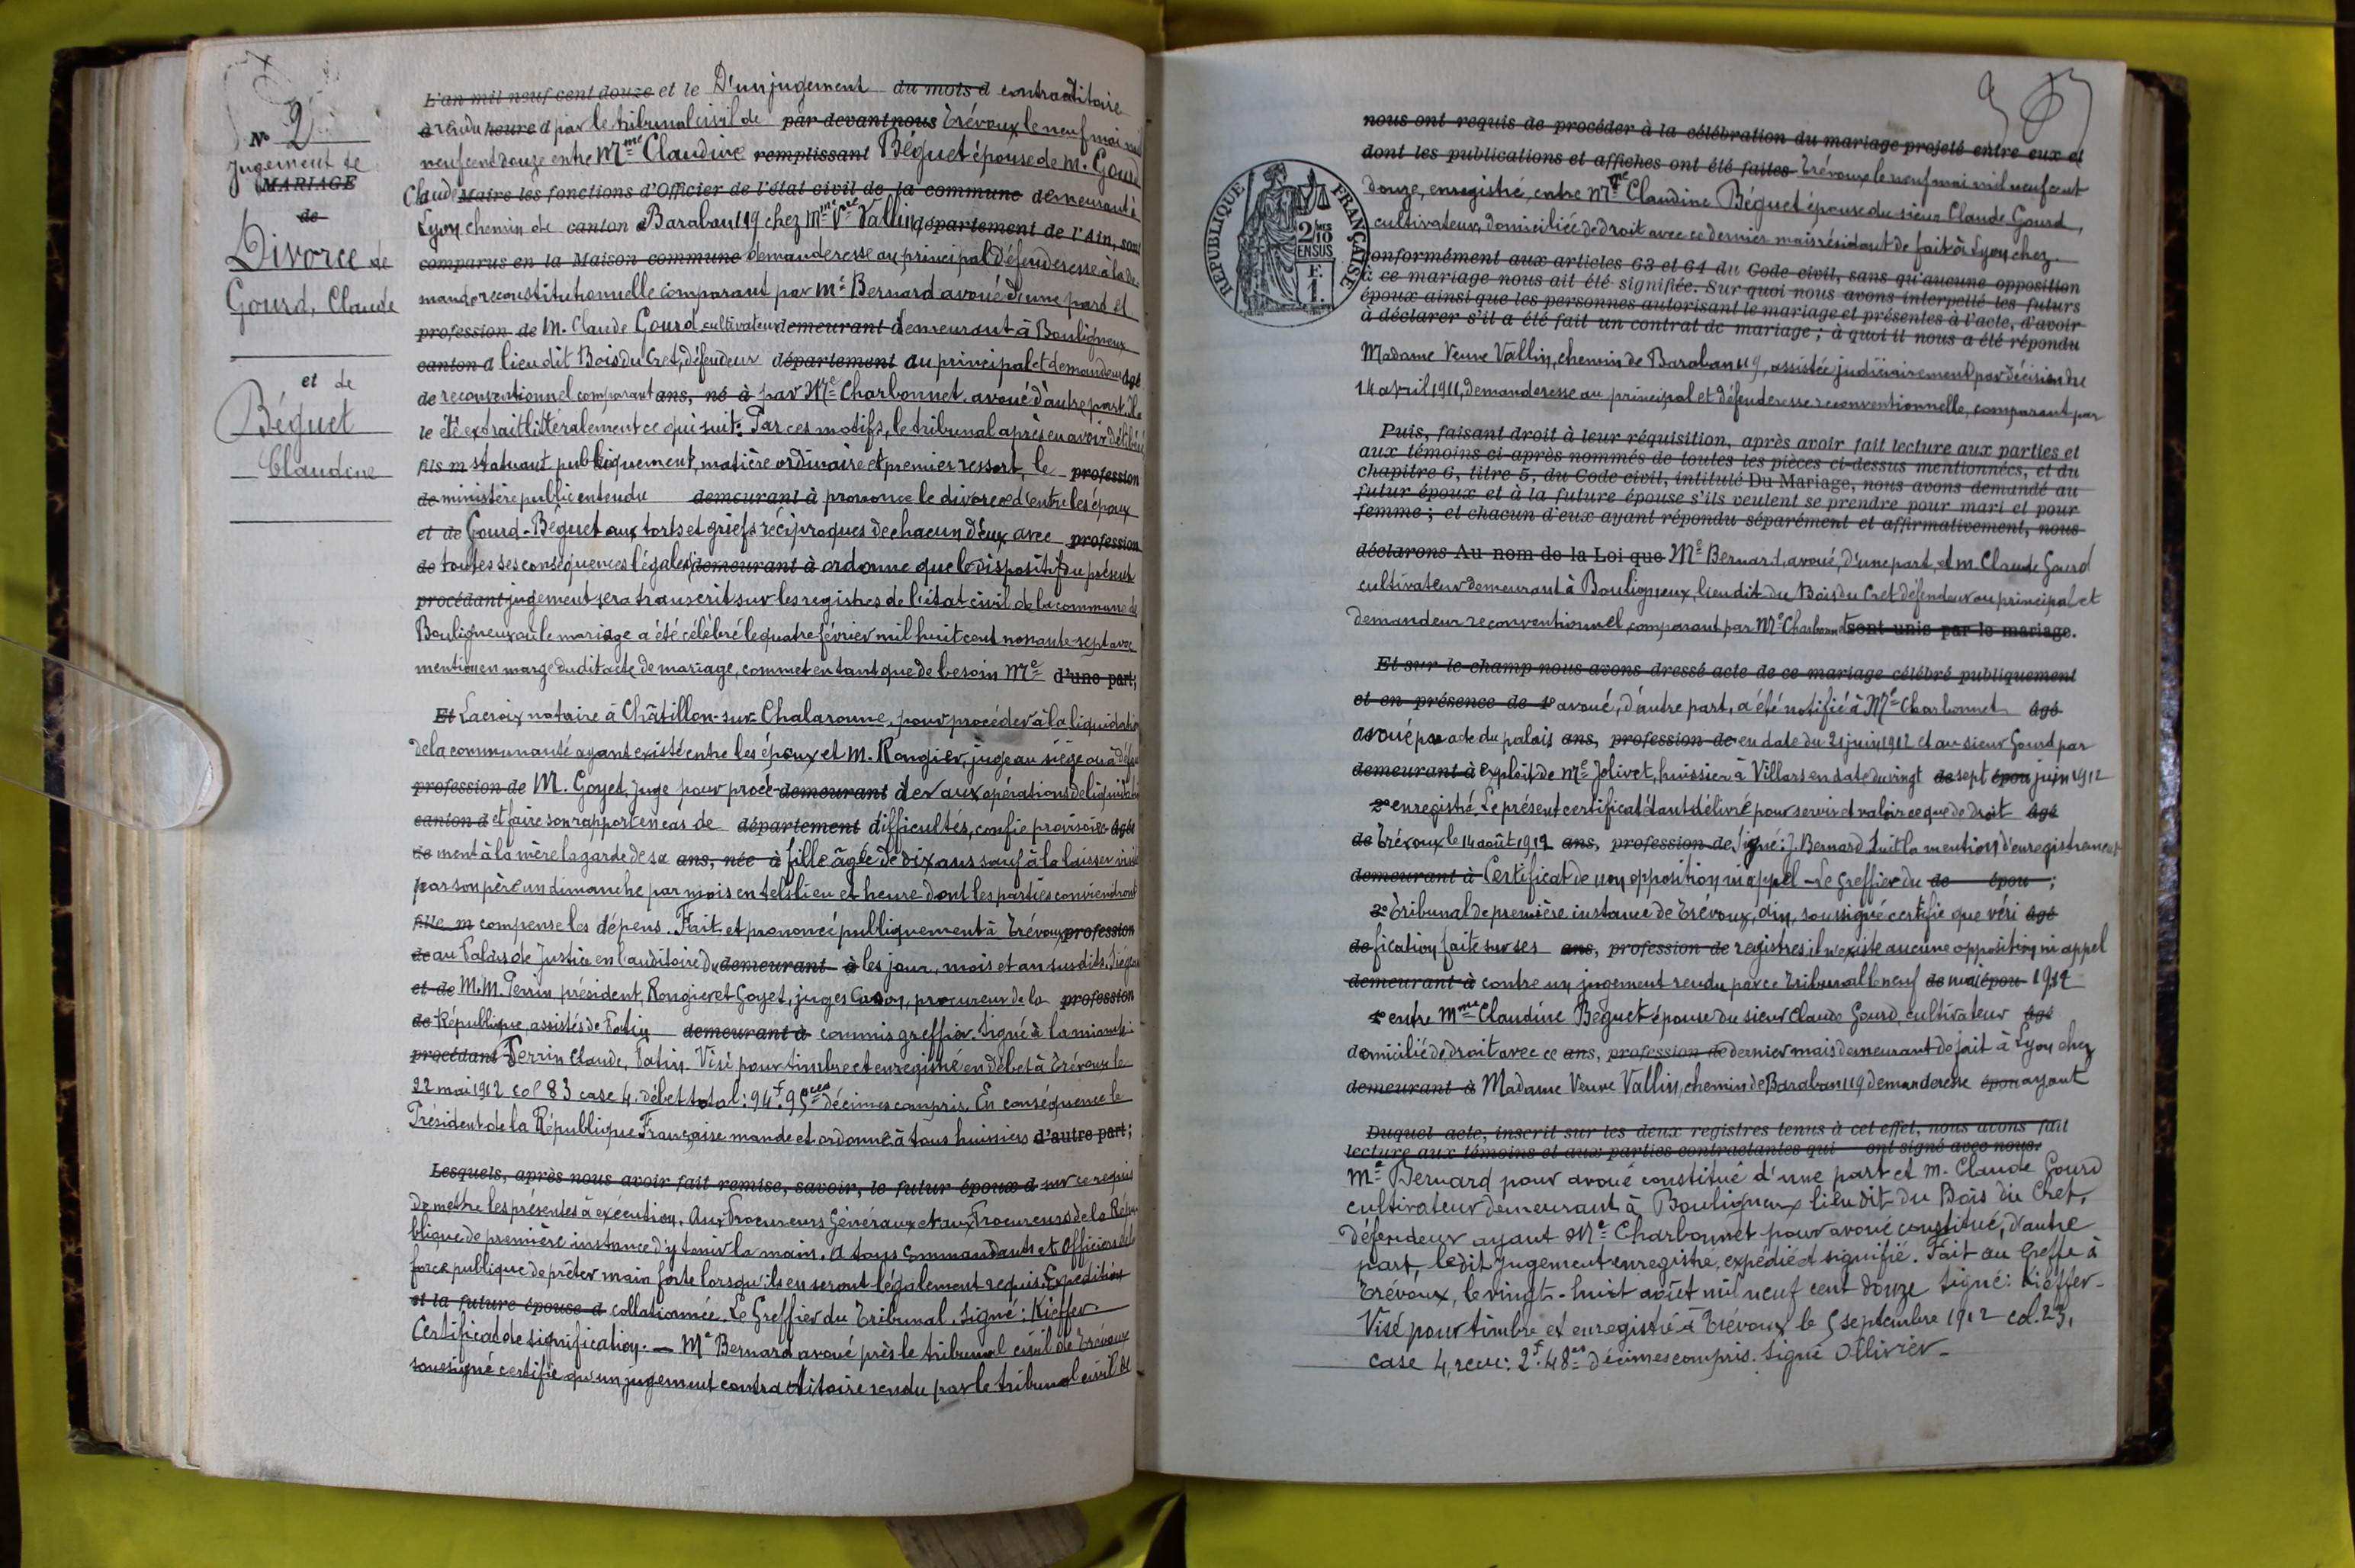 N° 2
Jugement de
MARIAGE
de
Divorce de
Gourd, Claude
et de
Béguet
Claudine
L'an mil neuf cent douze et le D'un jugement du mois d contraditoire
à rendu heure d par le tribunal civil de par devant nous Trévoux le neuf mai mil
neuf cent douze entre Mme Claudine remplissant Béguet épouse de M. Gourd
Claude Maire les fonctions d'Officier de l'état civil de la commune demeurant à
Lyon chemin de canton d Baraban 119 chez Mme Vve Vallin département de l'Ain, sont
comparus en la Maison commune demanderesse au principal défenderesse à la de
mande reconstitutionnelle comparant par Me Bernard avoué d'une part et
profession de M. Claude Gourd cultivateur demeurant demeurant à Bouligneux
canton d lieu dit Bois du Cret, défendeur département au principal et demandeur âgé
de reconventionnel comparant ans, né à par Me Charbonnet avoué d'autre part. Il a
le été extrait littéralement ce qui suit: Par ces motifs, le tribunal après en avoir délibéré
fils m statuant publiquement, matière ordinaire et premier ressort, le profession
de ministère public entendu demeurant à prononce le divorce d'entre les époux
et de Gourd-Béguet aux torts et griefs réciproques de chacun d'eux avec profession
de toutes ses conséquences légales, demeurant à ordonne que le dispositif du présent
procédant jugement sera transcrit sur les registres de l'état civil de la commune de
Bouligneux où le mariage a été célébré le quatre février mil huit cent nonante-sept avec
mention en marge dudit acte de mariage, commet en tant que de besoin Me d'une part;
Et Lacroix notaire à Châtillon-sur-Chalaronne, pour procéder à la liquidation
de la communauté ayant existé entre les époux et M. Rongier, juge au siège ou à défaut
profession de M. Goyet, juge pour procé- demeurant der aux opérations de liquidation
canton d et faire son rapport en cas de département difficultés, confie provisoire- âgée
de ment à la mère la garde de sa ans, née à fille âgée de dix ans sauf à la laisser visiter
par son père un dimanche par mois en tels lieu et heure dont les parties conviendront
fille m compense les dépens. Fait et prononcé publiquement à Trévoux profession
de au Palais de Justice en l'auditoire du demeurant à les jour, mois et an susdits. Siégeant
et de M.M. Perrin président, Rongier et Goyet, juges procureur de la profession
de République, assistés de demeurant à commis greffier. Signé à la minute:
procédant Perrin Claude, Visé pour timbre et enregistré en débet à Trévoux le
22 mai 1912 col 83 case 4. débet total: 94f.95ces décimes compris. En conséquence le
Président de la République Française mande et ordonne à tous huissiers d'autre part;
Lesquels, après nous avoir fait remise, savoir, le futur époux d sur ce requis
de mettre les présentes à exécution. Aux Procureurs Généraux et aux Procureurs de la Répu
blique de première instance d'y tenir la main. A tous Commandants et Officiers de la
force publique de prêter main forte lorsqu'ils en seront légalement requis. Expédition
et la future épouse d collationnée. Le Greffier du Tribunal. Signé: Kieffer.
Certificat de signification. — Me Bernard avoué près le tribunal civil de Trévoux
soussigné certifie qu'un jugement contraditoire rendu par le tribunal civil de
nous ont requis de procéder à la célébration du mariage projeté entre eux et
dont les publications et affiches ont été faites Trévoux le neuf mai mil neuf cent
douze, enregistré, entre Mme Claudine Béguet épouse du sieur Claude Gourd,
cultivateur, domiciliée de droit avec ce dernier mais résidant de fait à Lyon chez.
RÉPUBLIQUE FRANÇAISE
2/10 EN SUS
1 F.
conformément aux articles 63 et 64 du Code civil, sans qu'aucune opposition
à ce mariage nous ait été signifiée. Sur quoi nous avons interpellé les futurs
époux ainsi que les personnes autorisant le mariage et présentes à l'acte, d'avoir
à déclarer s'il a été fait un contrat de mariage; à quoi il nous a été répondu
Madame Veuve Vallin, chemin de Baraban 119, assistée judiciairement par décision du
14 avril 1911, demanderesse au principal et défenderesse reconventionnelle, comparant par
Puis, faisant droit à leur réquisition, après avoir fait lecture aux parties et
aux témoins ci-après nommés de toutes les pièces ci-dessus mentionnées, et du
chapitre 6, titre 5, du Code civil, intitulé Du Mariage, nous avons demandé au
futur époux et à la future épouse s'ils veulent se prendre pour mari et pour
femme; et chacun d'eux ayant répondu séparément et affirmativement, nous
déclarons Au nom de la Loi que Me Bernard, avoué, d'une part, et M. Claude Gourd
cultivateur demeurant à Bouligneux, lieu dit du Bois du Cret défendeur au principal et
demandeur reconventionnel, comparant par Me Charbonnet sont unis par le mariage.
Et sur le champ nous avons dressé acte de ce mariage célébré publiquement
et en présence de 1° avoué, d'autre part, a été notifié à Me Charbonnet âgé
avoué par acte du palais ans, profession de en date du 21 juin 1912 et au sieur Gourd par
demeurant à exploit de Me Jolivet, huissier à Villars en date du vingt de sept épou juin 1912
2° enregistré. Le présent certificat étant délivré pour servir et valoir ce que de droit âgé
de Trévoux le 14 août 1912 ans, profession de Signé: J. Bernard. Suit la mention d'enregistrement
demeurant à Certificat de non opposition ni appel - Le Greffier du de épou ;
3° Tribunal de première instance de Trévoux, Ain, soussigné certifie que véri âgé
de fication faite sur ses ans, profession de registres il n'existe aucune opposition ni appel
demeurant à contre un jugement rendu par ce tribunal le neuf de mai épou 1912
4° entre Mme Claudine Béguet épouse du sieur Claude Gourd, cultivateur âgé
domicilié de droit avec ce ans, profession de dernier mais demeurant de fait à Lyon chez
demeurant à Madame Veuve Vallin, chemin de Baraban 119 demanderesse épou ayant
Duquel acte, inscrit sur les deux registres tenus à cet effet, nous avons fait
lecture aux témoins et aux parties contractantes qui ont signé avec nous.
Me Bernard pour avoué constitué d'une part et M. Claude Gourd
cultivateur demeurant à Bouligneux lieu dit du Bois du Cret,
défendeur ayant Me Charbonnet pour avoué constitué, d'autre
part, ledit jugement enregistré, expédié et signifié. Fait au Greffe à
Trévoux, le vingt-huit août mil neuf cent douze Signé: Kieffer-
Visé pour timbre et enregistré à Trévoux le 5 septembre 1912 col. 23,
case 4, reçu: 2f.48es décimes compris. Signé Ollivier-